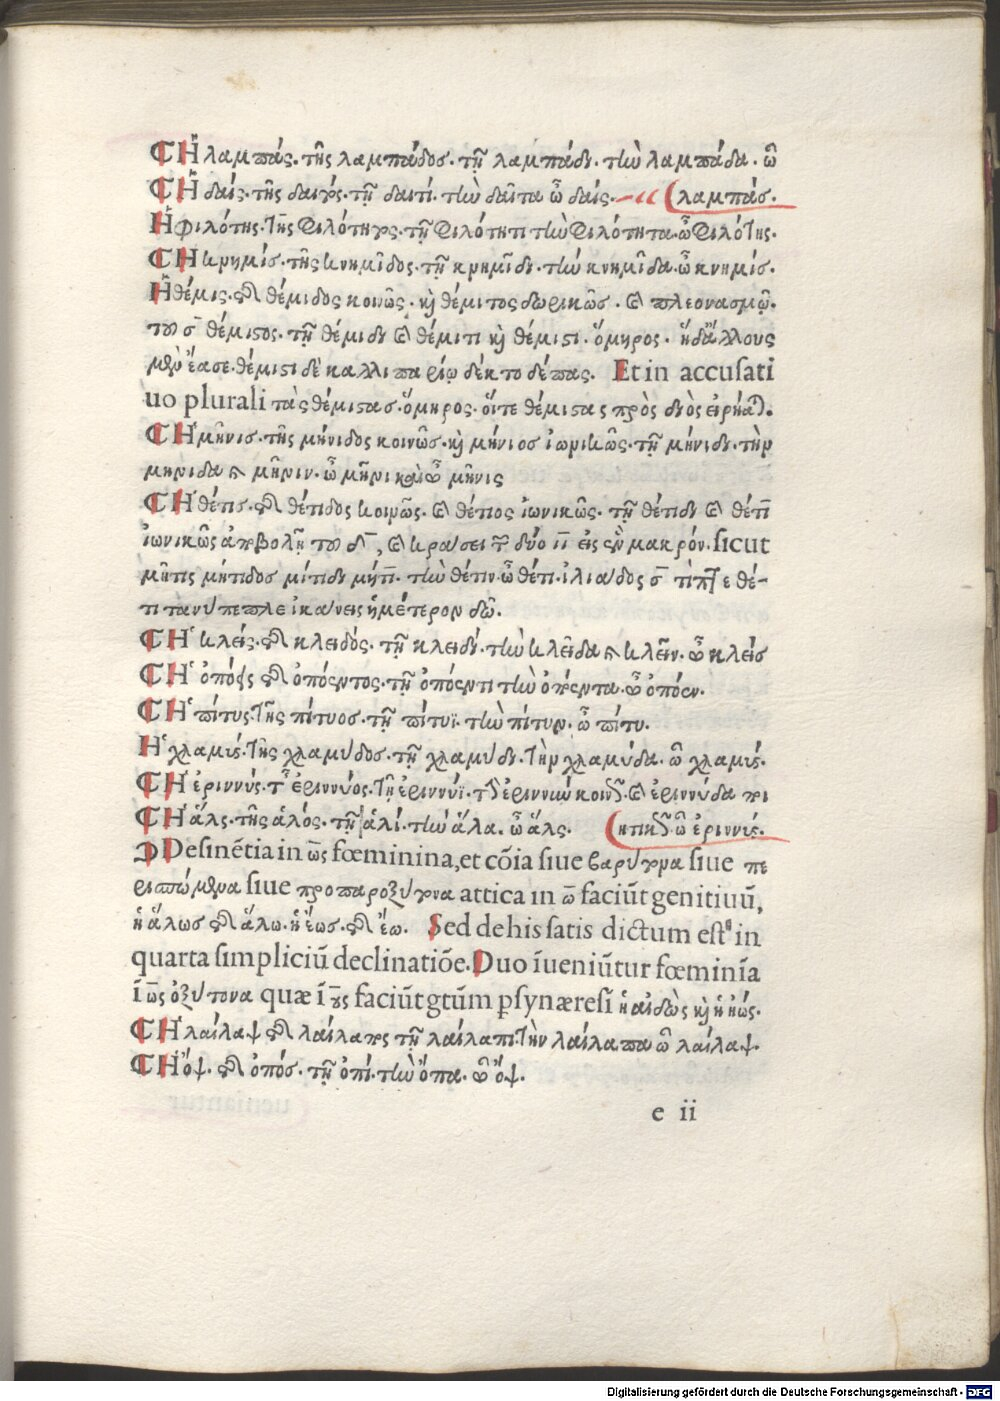 ¶Ἡ λαμπάς. τῆς λαμπάδος. τῇ λαμπάδι. τὴν λαμπάδα. ὦ
¶Ἡ δαίς. τῆς δαιτός. τῇ δαιτί. τὴν δαῖτα ὦ δαίς. (λαμπάς.
Ἡ φιλότης. τῆς φιλότητος. τῇ φιλότητι τὴν φιλότητα. ὦ φιλότης.
¶Ἡ κνημίς. τῆς κνημῖδος. τῇ κνημῖδι. τὴν κνημῖδα. ὦ κνημίς.
Ἡ θέμις. τῆς θέμιδος κοινῶς. καὶ θέμιτος δωρικῶς. καὶ πλεονασμῷ.
τοῦ σ̄ θέμιστος. τῇ θέμιδι καὶ θέμιτι καὶ θέμιστι. ὅμηρος. ἡδ' ἄλλους
μὲν ἔασε. θέμιστι δὲ καλλιπαρίῳ δέκτο δέπας. Et in accusati
uo plurali τὰς θέμιστας. ὅμηρος. οἵτε θέμιστας πρὸς διὸς εἰρήαται.
¶Ἡ μῆνις. τῆς μήνιδος κοινῶς. καὶ μήνιος ἰωνικῶς. τῇ μήνιδι. τὴν
μήνιδα καὶ μῆνιν. ὦ μῆνι καὶ ὦ μῆνις
¶Ἡ θέτις. τῆς θέτιδος κοινῶς. καὶ θέτιος ἰωνικῶς. τῇ θέτιδι καὶ θέτῑ
ἰωνικῶς ἀποβολῇ τοῦ δ̄, καὶ κράσει τῶν δύο ῑῑ εἰς ἓν μακρόν. sicut
μῆτις μήτιδος μήτιδι μήτῑ. τὴν θέτιν. ὦ θέτι. ἰλιάδος σ̄ τίπτε θέ-
τι τανύπεπλε ἱκάνεις ἡμέτερον δῶ.
¶Ἡ κλείς. τῆς κλειδός. τῇ κλειδί. τὴν κλεῖδα καὶ κλεῖν. ὦ κλείς
¶Ἡ ὀπόεις τῆς ὀπόεντος. τῇ ὀπόεντι τὴν ὀπόεντα. ὦ ὀπόεν.
¶Ἡ πίτυς. τῆς πίτυος. τῇ πίτυϊ. τὴν πίτυν. ὦ πίτυ.
Ἡ χλαμύς. τῆς χλαμύδος. τῇ χλαμύδι. τὴν χλαμύδα. ὦ χλαμύς.
¶Ἡ ἐριννύς. τῆς ἐριννύος. τῇ ἐριννύϊ. τὴν ἐριννὺν κοινῶς. καὶ ἐριννύδα ποι
¶Ἡ ἅλς. τῆς ἁλός. τῇ ἁλί. τὴν ἅλα. ὦ ἅλς. (ητικῶς. ὦ ἐριννύς.
¶Desinẽtia in ω̄ς fœminina, et cõia siue βαρύτονα siue πε
ρισπώμενα siue προπαροξύτονα attica in ω̄ faciũt genitiuũ,
ἡ ἅλως τῆς ἅλω. ἡ ἕως. τῆς ἕω. Sed de his satis dictum est in
quarta simpliciũ declinatiõe. Duo ĩueniũtur fœminĩa
ĩ ω̄ς ὀξύτονα quæ ĩ ο̄υς faciũt gtũm p synæresĩ ἡ αἰδὼς καὶ ἡ ἠώς.
¶Ἡ λαῖλαψ τῆς λαίλαπος τῇ λαίλαπι. τὴν λαίλαπα ὦ λαῖλαψ.
¶Ἡ ὄψ. τῆς ὀπός. τῇ ὀπί. τὴν ὄπα. ὦ ὄψ.
e ii
Digitalisierung gefördert durch die Deutsche Forschungsgemeinschaft - DFG